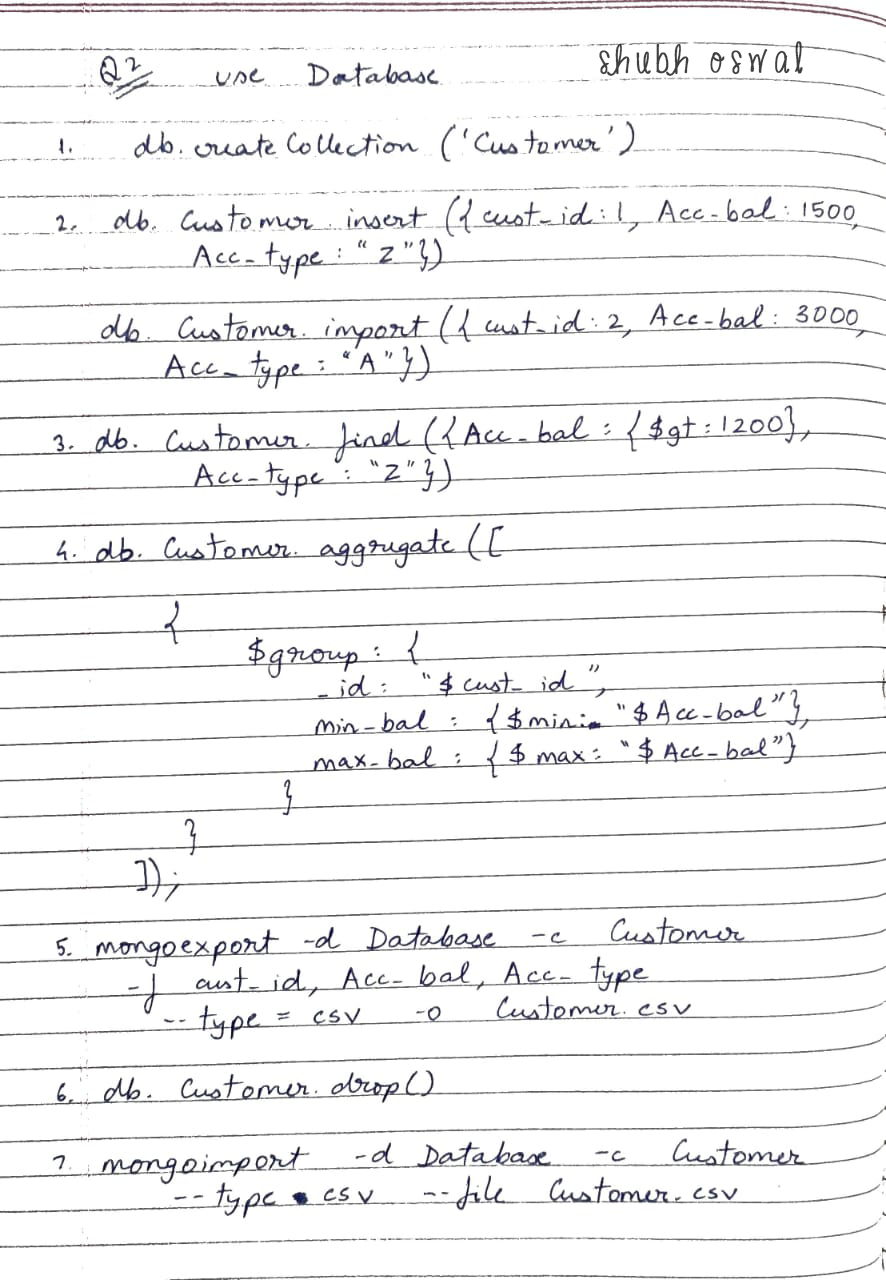 Q2 use Database Shubh Oswal
1. db.createCollection ('Customer')
2. db. Customer. insert ({ cust_id: 1, Acc-bal: 1500,
Acc-type : "Z"})
db. Customer. import ({ cust_id: 2, Acc-bal: 3000,
Acc_type : "A"})
3. db. Customer. find ({Acc-bal : {$gt : 1200},
Acc-type : "Z"})
4. db. Customer. aggregate ([
{
$group : {
_id : "$cust_id",
min-bal : {$min: "$Acc-bal"},
max-bal : {$max: "$Acc-bal"}
}
}
]);
5. mongoexport -d Database -c Customer
-f cust_id, Acc-bal, Acc-type
--type = csv -o Customer.csv
6. db. Customer. drop()
7. mongoimport -d Database -c Customer
--type csv --file Customer.csv